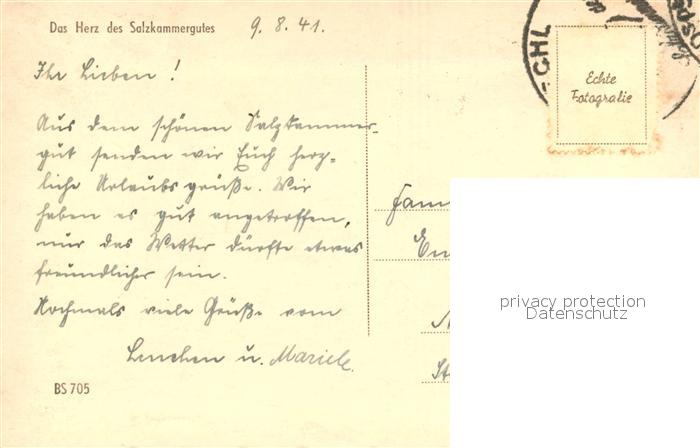 Das Herz des Salzkammergutes 9.8.41.
Ihr Lieben!
Aus dem schönen Salzkammer-
gut senden wir Euch herz-
liche Urlaubsgrüße. Wir
haben es gut angetroffen,
nur das Wetter dürfte etwas
freundlicher sein.
Nochmals viele Grüße vom
Lenchen u. Mariele.
BS 705
CHL
Echte
Fotografie
Fam
privacy protection
Datenschutz